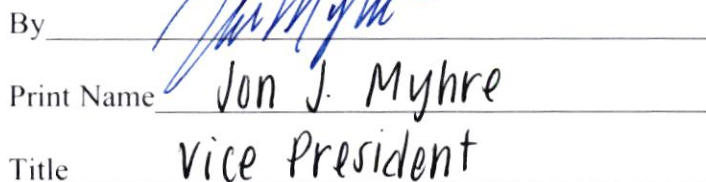 By
Print Name Jon J. Myhre
Title Vice President